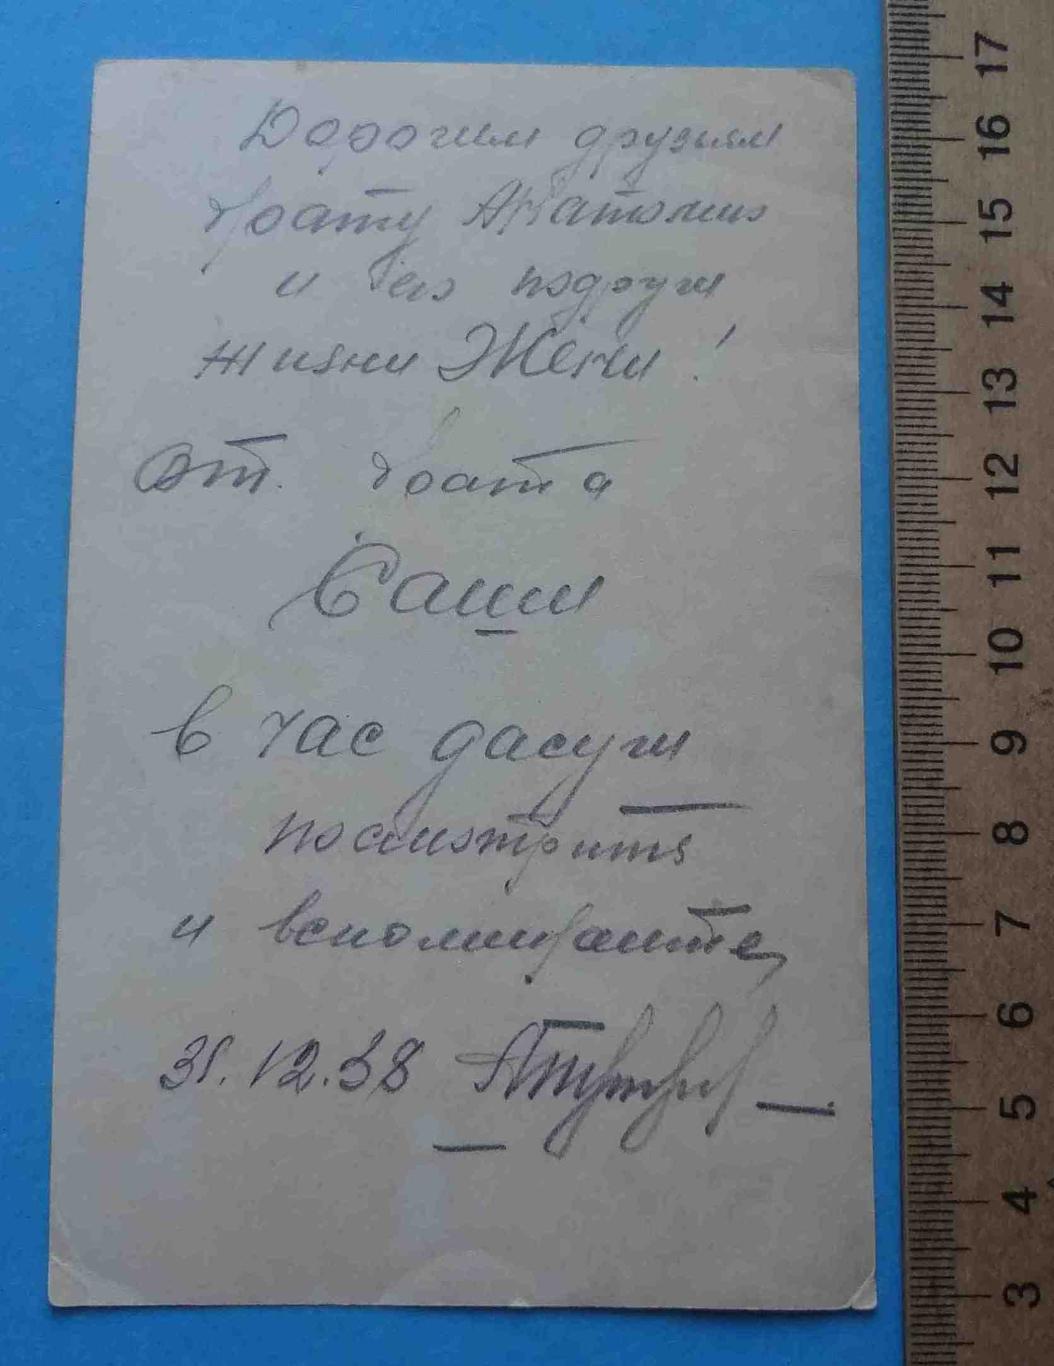 Дорогим друзьям
брату Анатолию
и его подруги
жизни Жени!
от. брата
Саши
в час дасуги
посмотрите
и вспоминайте,
31.12.38
17
16
15
14
13
12
11
10
9
8
7
6
5
4
3